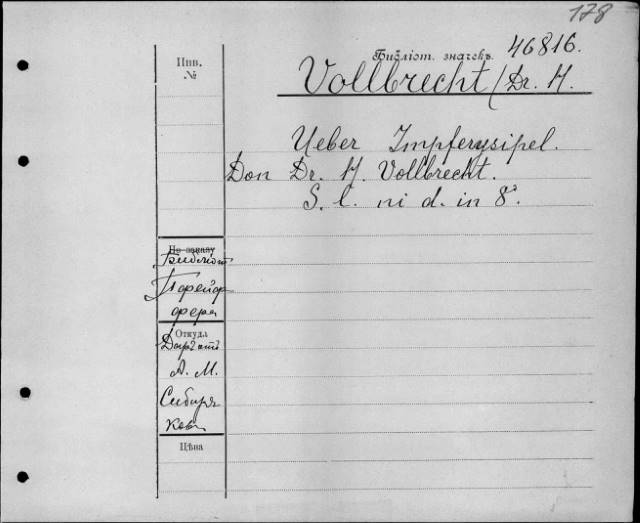 178
Инв.
№
Библіот. значекъ 46816.
Vollbrecht / Dr. H.
Ueber Impferysipel.
Von Dr. H. Vollbrecht.
S. l. ni d. in 8°.
По заказу
Библіот
Пфейф
фера
Откуда
Даръ отъ
А. М.
Сибиря
кова
Цѣна